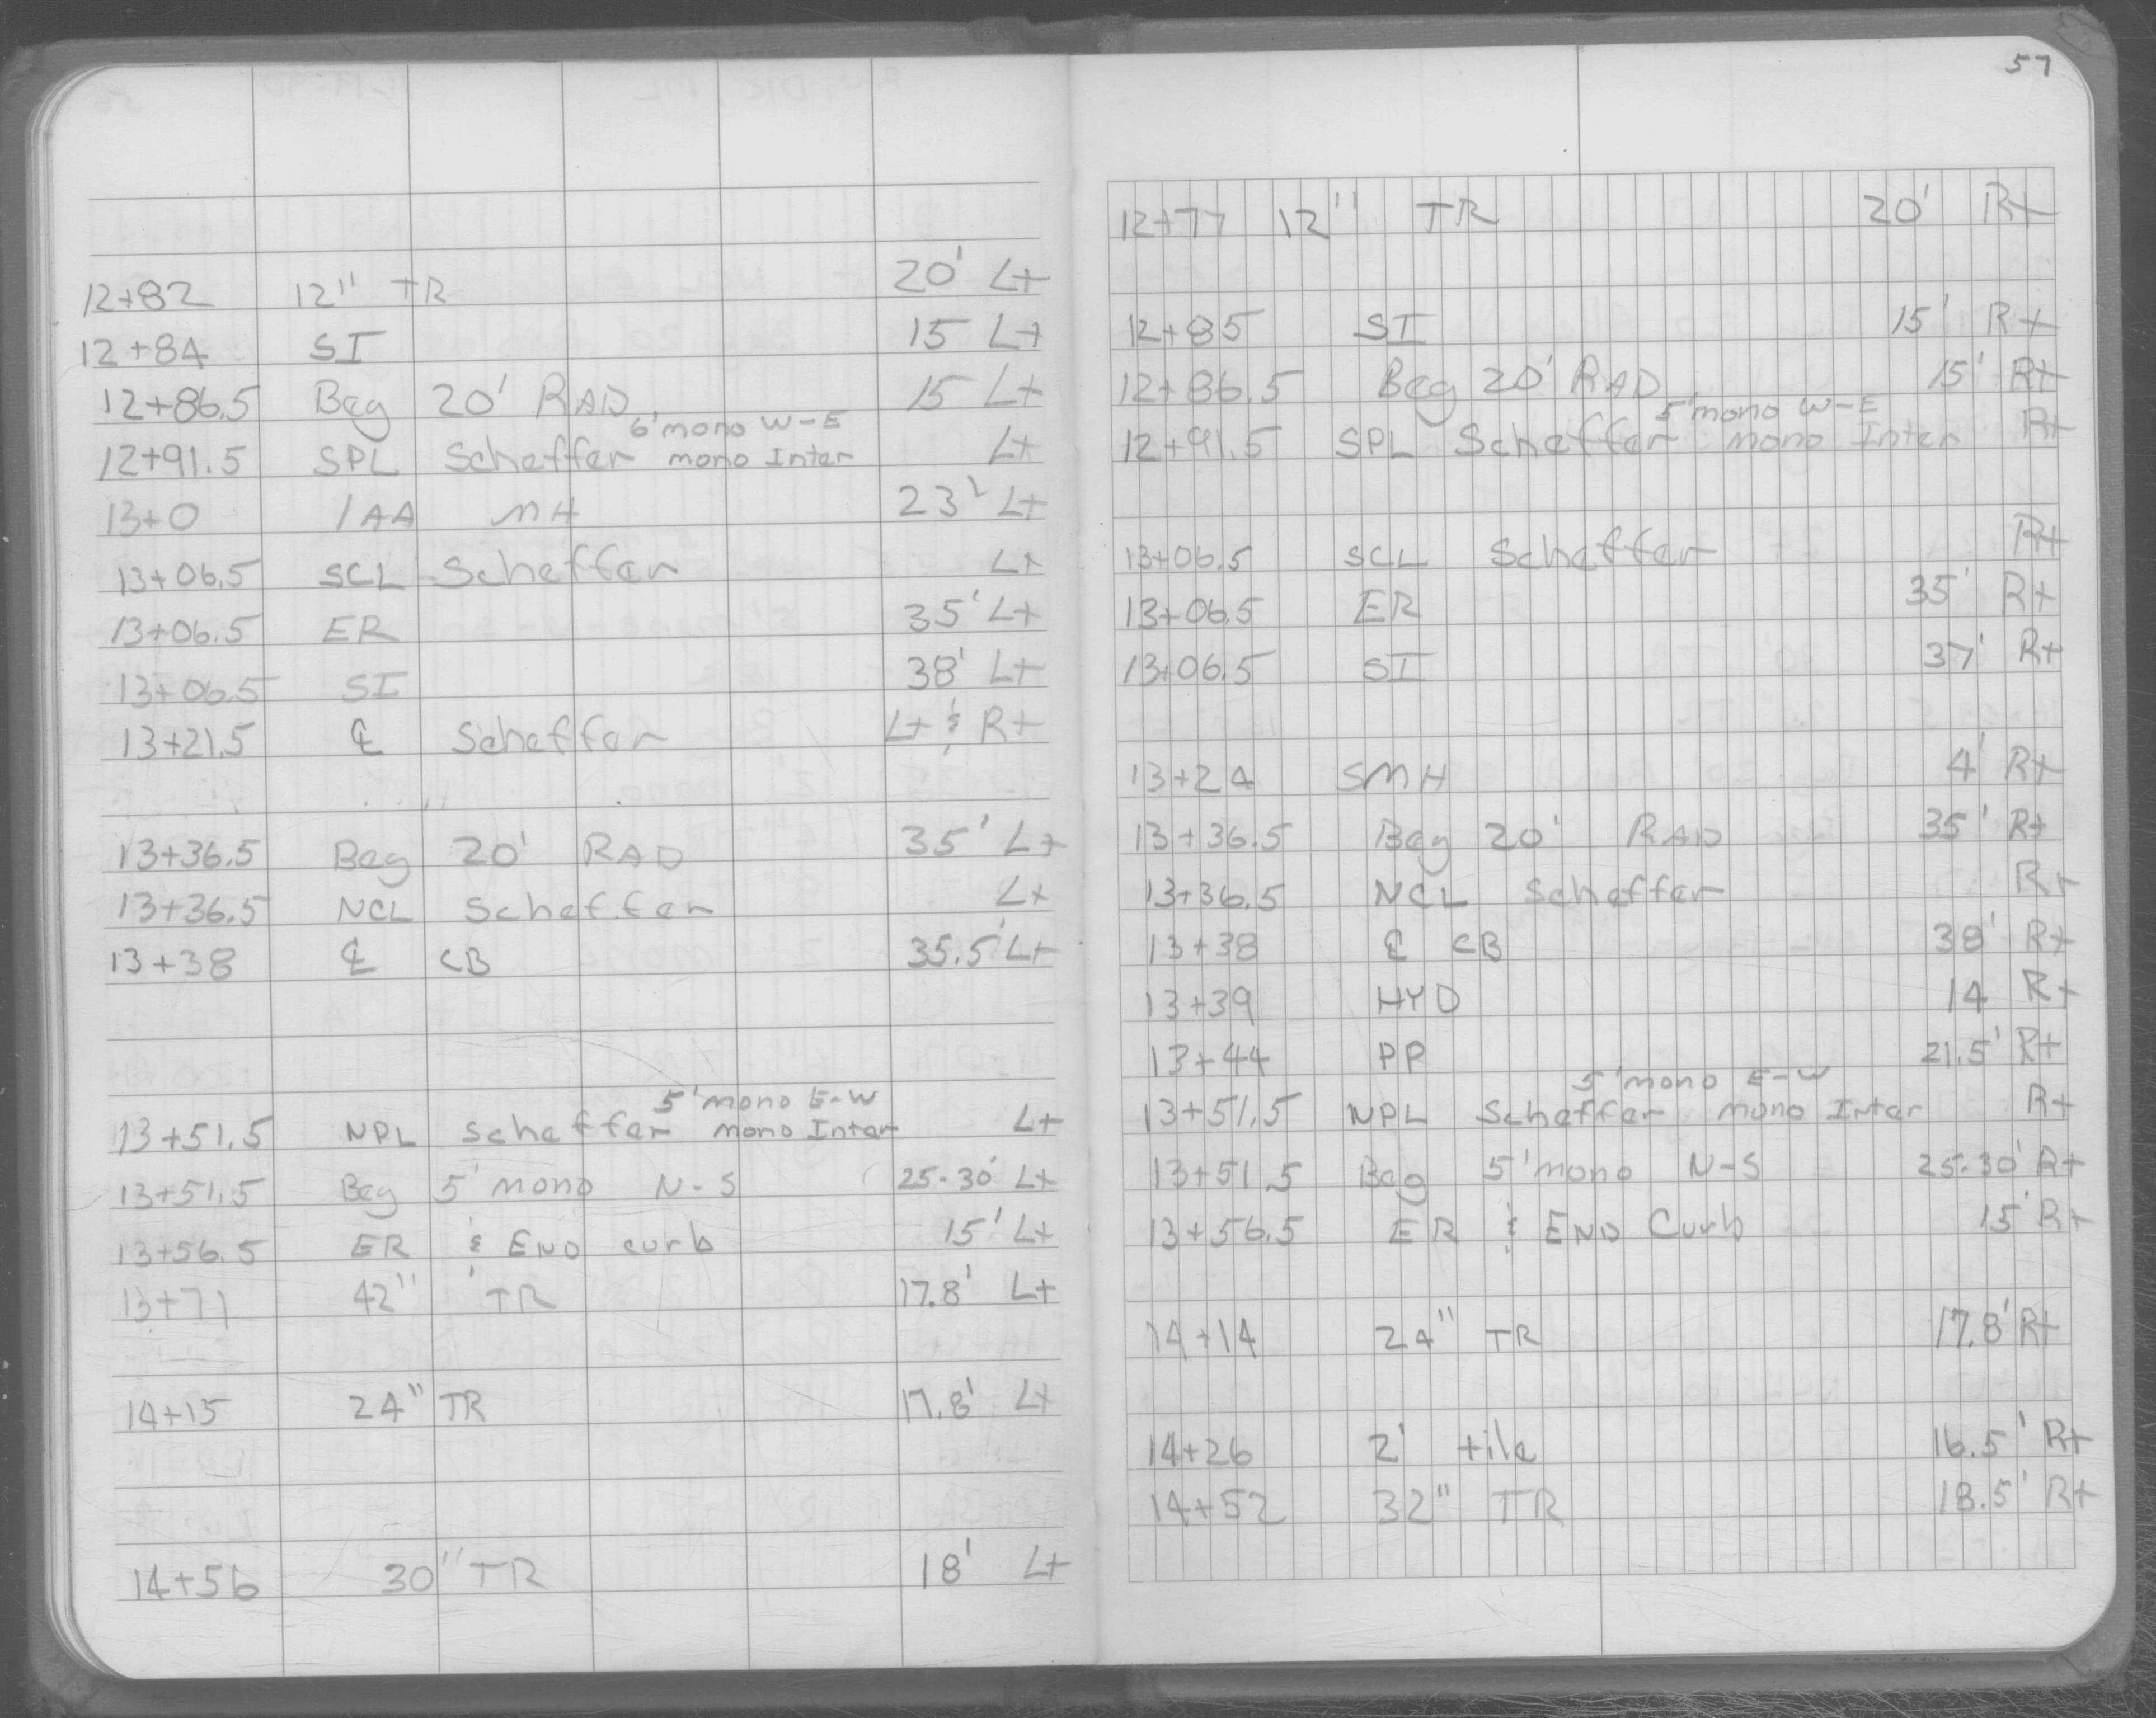 12+82 12" TR 20' Lt
12+84 SI 15 Lt
12+86.5 Beg 20' RAD 15 Lt
6' mono W-E
12+91.5 SPL Scheffer mono Inter Lt
13+0 1AA MH 23' Lt
13+06.5 SCL Scheffer Lt
13+06.5 ER 35' Lt
13+06.5 SI 38' Lt
13+21.5 ℄ Scheffer Lt & Rt
13+36.5 Beg 20' RAD 35' Lt
13+36.5 NCL Scheffer Lt
13+38 ℄ CB 35.5' Lt
5' mono E-W
13+51.5 NPL Scheffer mono Inter Lt
13+51.5 Beg 5' mono N-S 25-30' Lt
13+56.5 ER & END curb 15' Lt
13+71 42" TR 17.8' Lt
14+15 24" TR 17.8' Lt
14+56 30" TR 18' Lt
57
12+77 12" TR 20' Rt
12+85 SI 15' Rt
12+86.5 Beg 20' RAD 15' Rt
5' mono W-E
12+91.5 SPL Scheffer mono Inter Rt
13+06.5 SCL Scheffer Rt
13+06.5 ER 35' Rt
13+06.5 SI 37' Rt
13+24 SMH 4' Rt
13+36.5 Beg 20' RAD 35' Rt
13+36.5 NCL Scheffer Rt
13+38 ℄ CB 38' Rt
13+39 HYD 14 Rt
13+44 PP 21.5' Rt
5' mono E-W
13+51.5 NPL Scheffer mono Inter Rt
13+51.5 Beg 5' mono N-S 25-30' Rt
13+56.5 ER & END Curb 15' Rt
14+14 24" TR 17.8' Rt
14+26 2' tile 16.5' Rt
14+52 32" TR 18.5' Rt